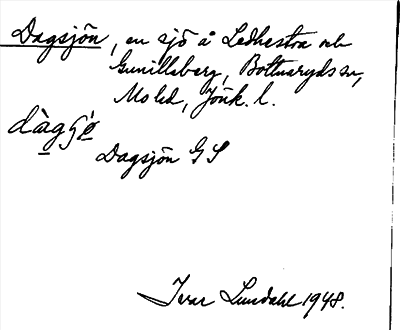 Dagsjön, en sjö å Ledhestra och
Gunillaberg, Bottnaryds sn,
Mo hd, Jönk. l.
dàgʂø̀
Dagsjön GS
Ivar Lundahl 1948.